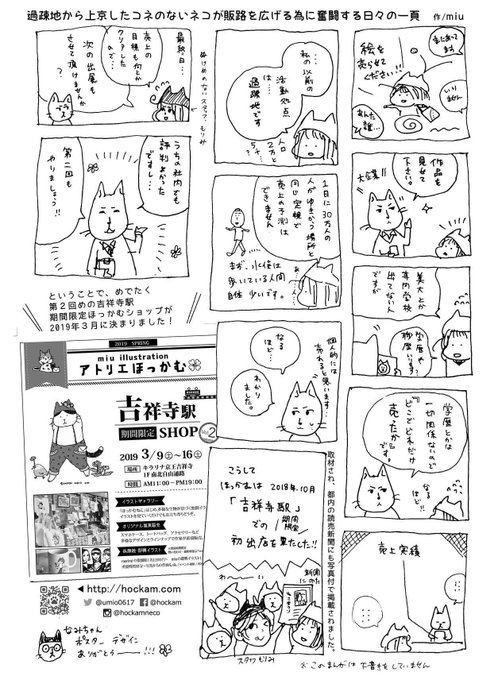 過疎地から上京したコネのないネコが販路を広げる為に奮闘する日々の一頁　作/miu
絵を
売らせて
ください!!
いりません
あんた
誰…
作品を
見せて
下さい。
大企業!!
美大とか
専門学校
出てない
んですが
学歴とかは
一切関係ないので
どこでどれだけ
売ったか
です。
なる
ほど…
売上実績
私の以前の
活動拠点
は…
過疎地です
人口
2万と
1日に30万人の
人がゆきかう場所と
同じ定規で
売上の予測は
できません
まず、水俣は
歩いている人間
自体少いです。
個人的には
売れると思います…
なる
ほど…
わかり
ました。
こうして
ほっかむは 2018年.10月
「吉祥寺駅」
での 期間限定
初出店を果たした!!
取材され、都内の読売新聞にも写真付で掲載されました。
わーい
新聞
にのった
最終日…
売上の
目標も何とか
クリアした
ので…
次の出展も
させて頂けませんか
うちの社内でも
評判よかった
ですし…
第二回も
やりましょう!!
ということで、めでたく
第2回めの吉祥寺駅
期間限定ほっかむショップが
2019年3月に決まりました！
2019 SPRING
miu illustration
アトリエほっかむ
吉祥寺駅
期間限定 SHOP No.2
2019 3/9㊏〜16㊏
場所 キラリナ京王吉祥寺
1F南北自由通路
時間 AM11:00〜PM19:00
イラストギャラリー
オリジナル雑貨販売
◀ http://hockam.com
@umio0617 @hockam
@hockamneco
なみちゃん
ポスター デザイン
ありがとうーー!!!
※このまんがは下書きをしていません